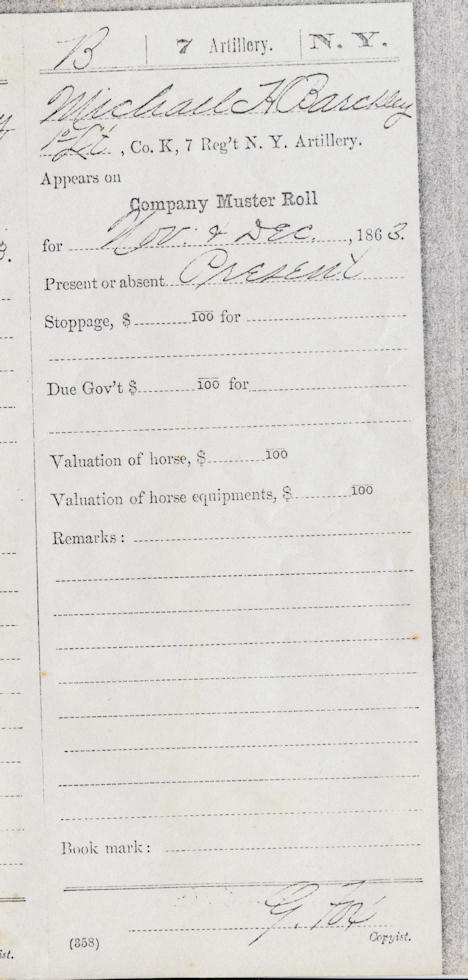 B | 7 Artillery. | N. Y.
Michael H Barckley
1st Lt, Co. K, 7 Reg't N. Y. Artillery.
Appears on
Company Muster Roll
for Nov. & Dec., 1863.
Present or absent Present
Stoppage, $ 100 for
Due Gov't $ 100 for
Valuation of horse, $ 100
Valuation of horse equipments, $ 100
Remarks:
Book mark:
G. Fox
(358) Copyist.
ist.